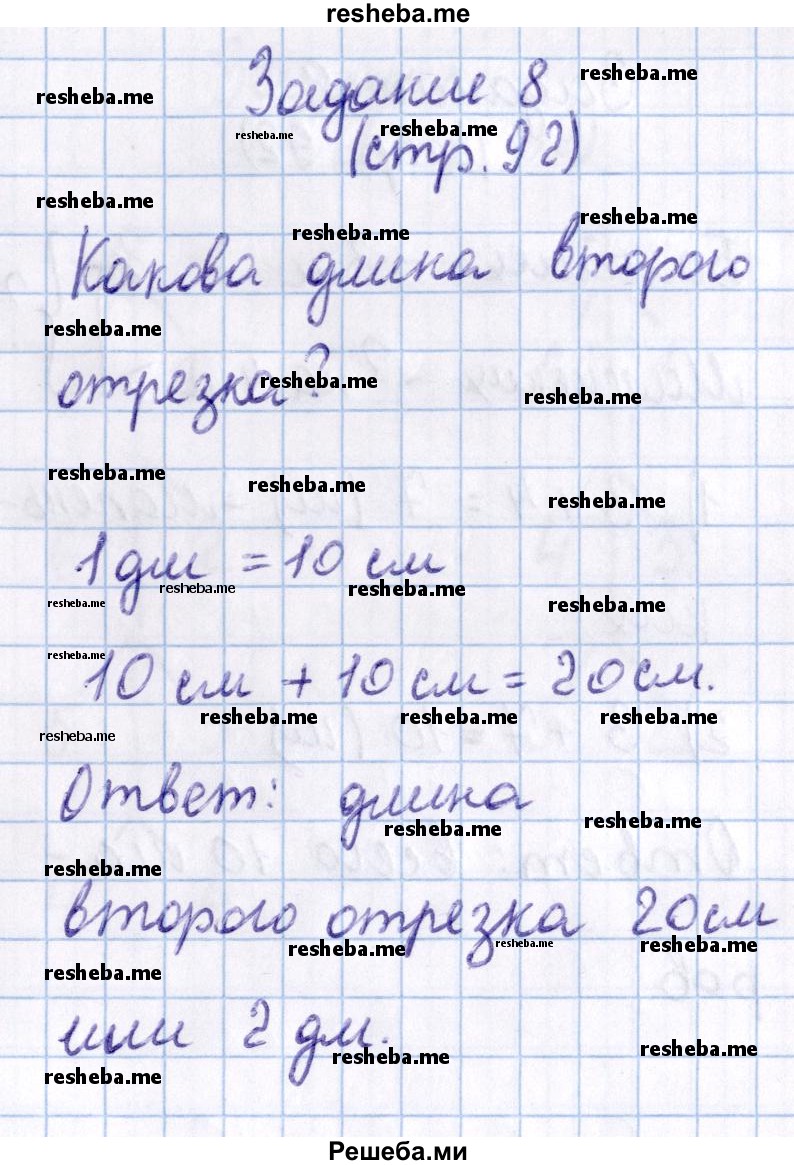 resheba.me
Задание 8
resheba.me resheba.me
resheba.me resheba.me
(стр. 92)
resheba.me resheba.me
resheba.me
Какова длина второго
resheba.me
отрезка?
resheba.me resheba.me
resheba.me resheba.me resheba.me
1 дм = 10 см
resheba.me resheba.me resheba.me resheba.me
resheba.me
10 см + 10 см = 20 см.
resheba.me resheba.me resheba.me
resheba.me
Ответ: длина
resheba.me resheba.me
resheba.me
второго отрезка 20 см
resheba.me resheba.me resheba.me
resheba.me
или 2 дм.
resheba.me resheba.me
resheba.me
Решеба.ми